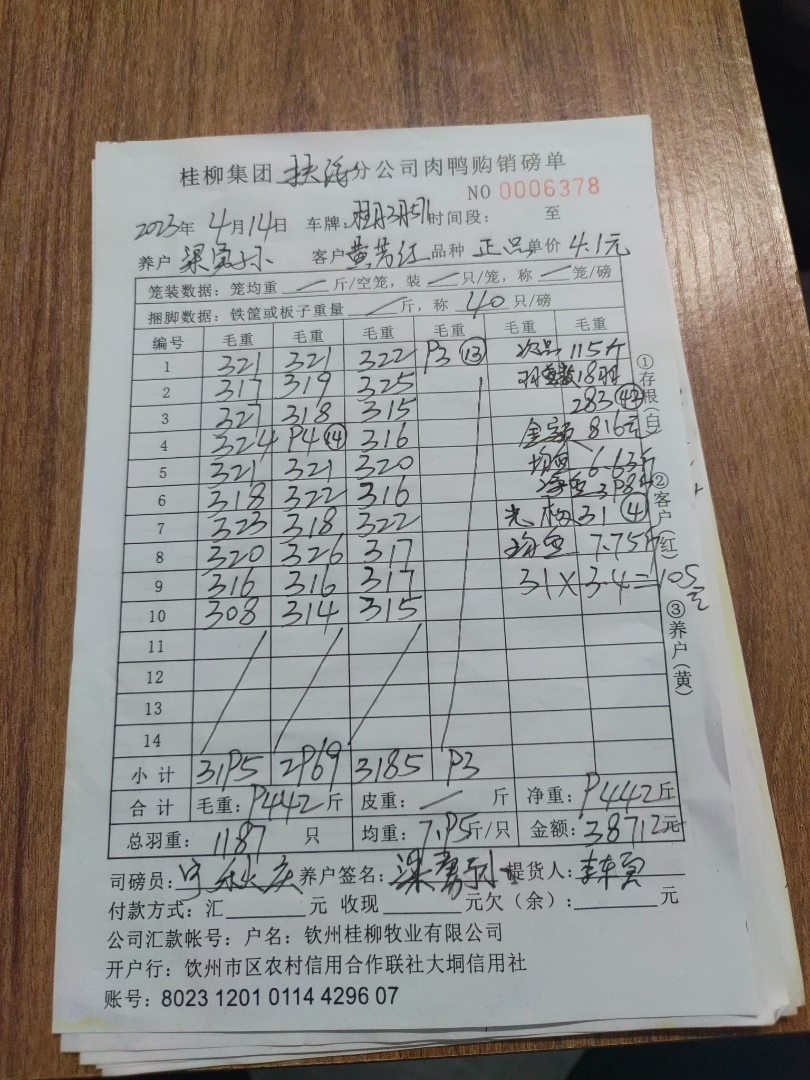 桂柳集团 扶绥 分公司肉鸭购销磅单
NO 0006378
2023年 4月14日 车牌: 时间段: 至
养户 梁 客户 黄芳红 品种 正品 单价 4.1元
笼装数据: 笼均重 / 斤/空笼, 装 / 只/笼, 称 / 笼/磅
捆脚数据: 铁筐或板子重量 / 斤, 称 40 只/磅
编号 毛重 毛重 毛重 毛重 毛重 毛重
1 321 321 322 93 ⑬ 次品 115斤
2 317 319 325 羽数 18羽
3 327 318 315 283 ㊷
4 324 94 ⑭ 316 金额 816元
5 321 321 320 均重 6.63斤
6 318 322 316 净重 398斤
7 323 318 322 31 ④
8 320 326 317 均重 7.75斤
9 316 316 317 31×3.4=105元
10 308 314 315
11
12
13
14
小计 3195 2969 3185 93
合计 毛重: 9442 斤 皮重: / 斤 净重: 9442 斤
总羽重: 1187 只 均重: 7.95 斤/只 金额: 38712 元
司磅员: 养户签名: 梁 提货人:
付款方式: 汇 元 收现 元 欠(余): 元
公司汇款帐号: 户名: 钦州桂柳牧业有限公司
开户行: 钦州市区农村信用合作联社大垌信用社
账号: 8023 1201 0114 4296 07
①存根(白) ②客户(红) ③养户(黄)